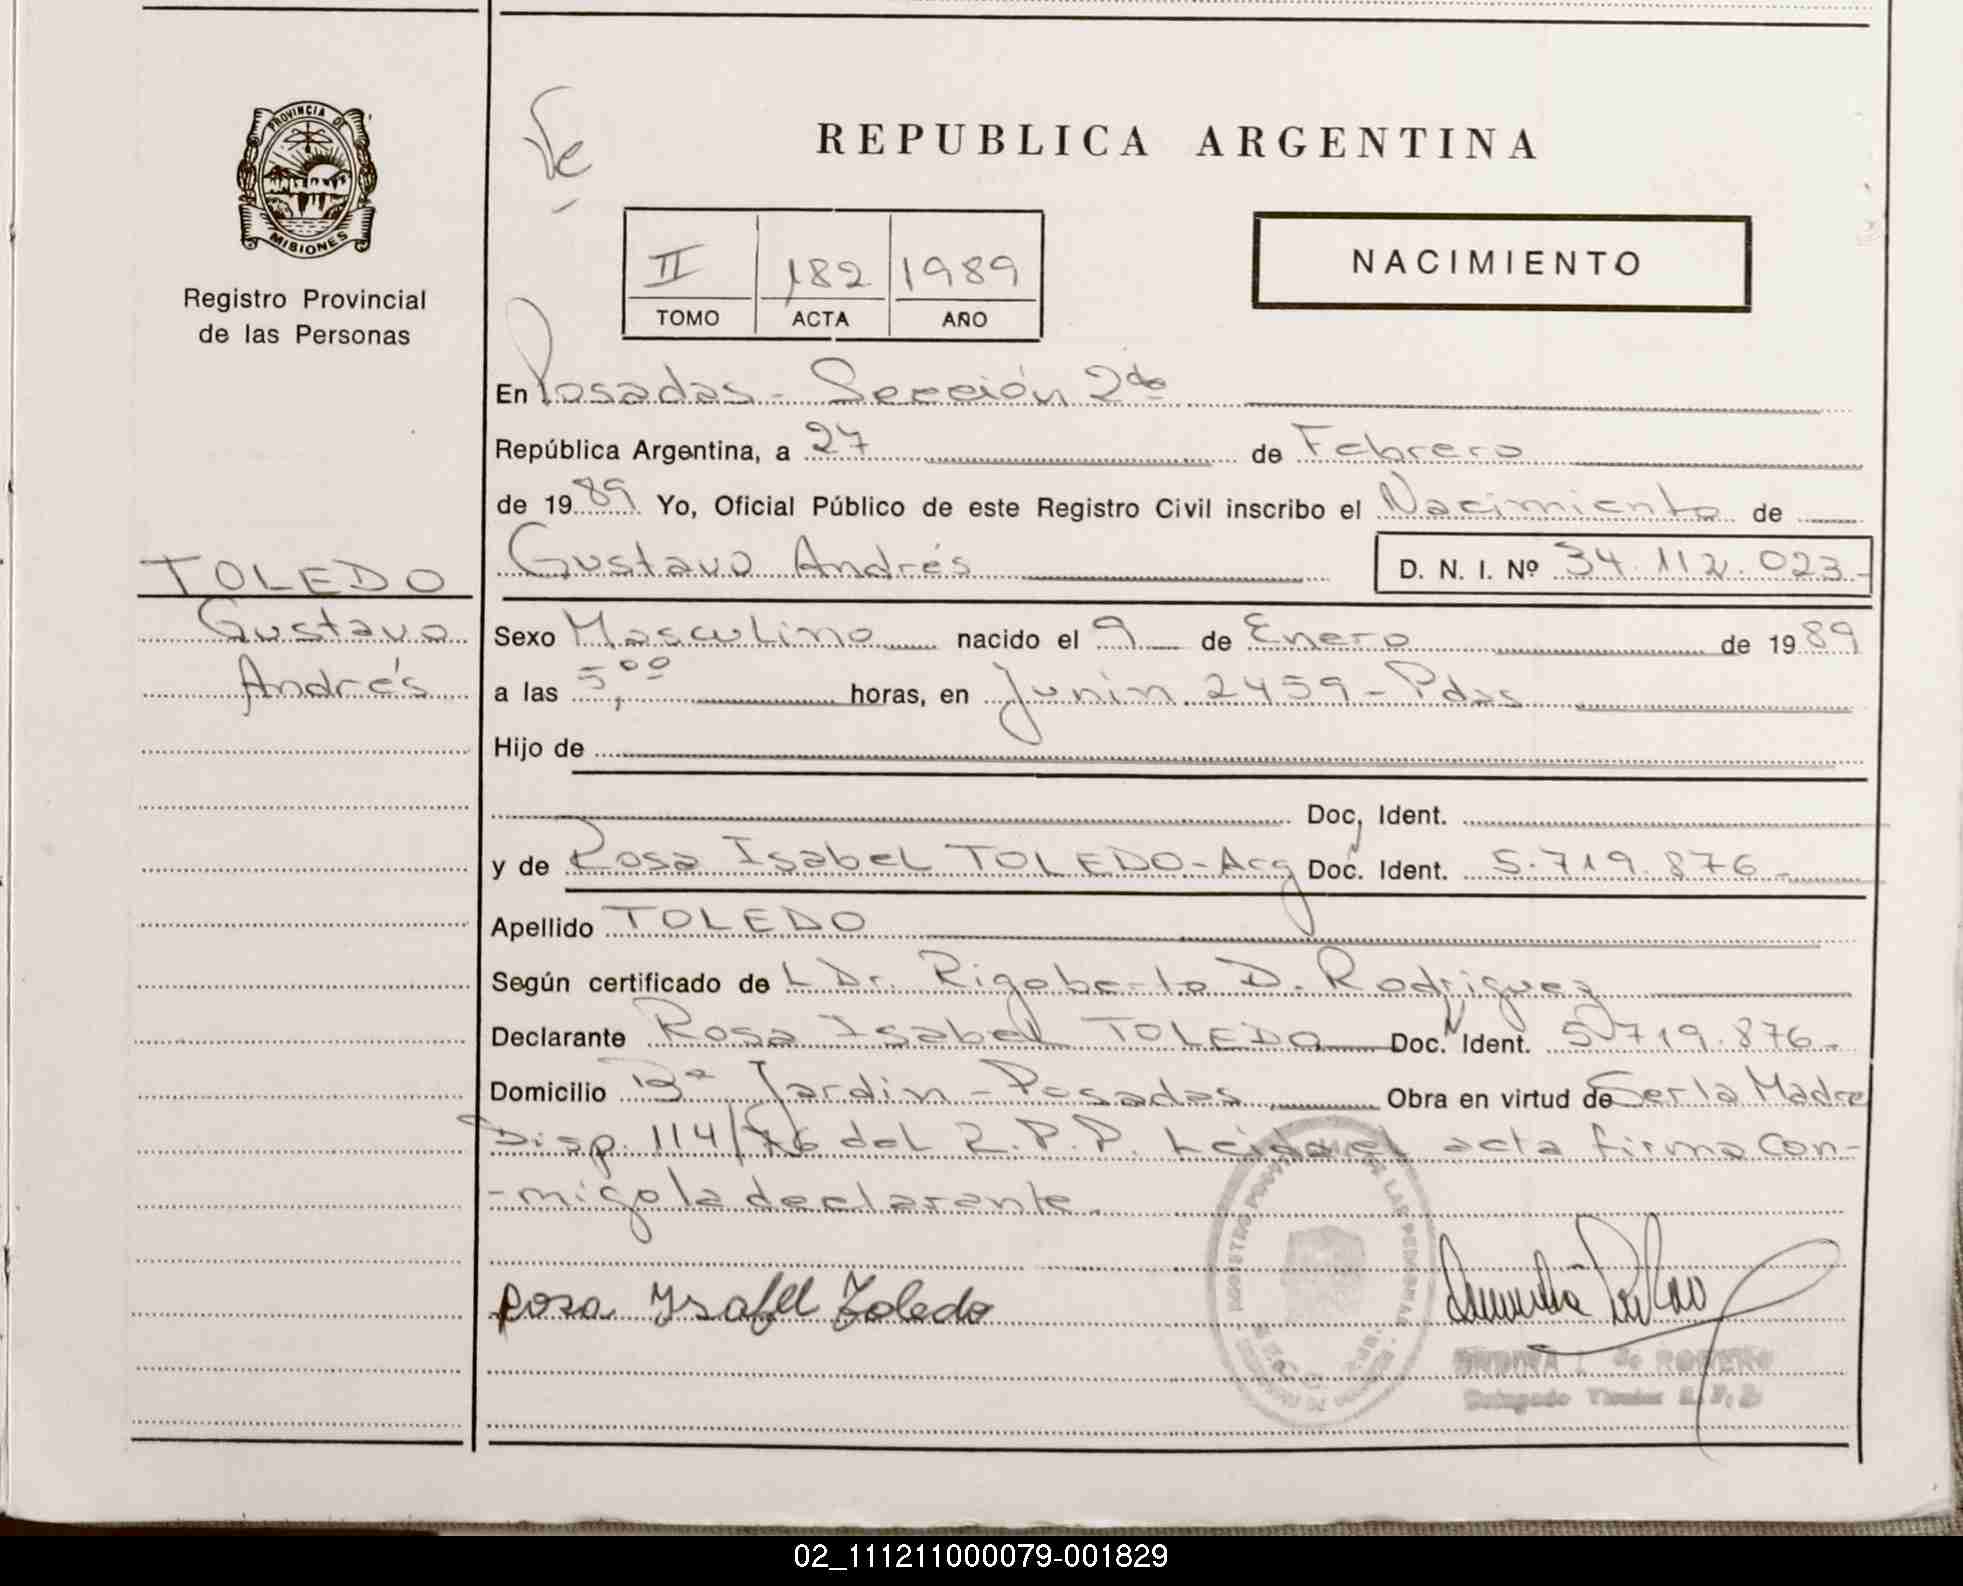 PROVINCIA DE
MISIONES
Registro Provincial
de las Personas
TOLEDO
Gustavo
Andrés
REPUBLICA ARGENTINA
II 182 1989
TOMO ACTA AÑO
NACIMIENTO
En Posadas - Sección 2da
República Argentina, a 27 de Febrero
de 1989 Yo, Oficial Público de este Registro Civil inscribo el Nacimiento de
Gustavo Andrés D. N. I. Nº 34.112.023-
Sexo Masculino nacido el 9 de Enero de 1989
a las 5,00 horas, en Junin 2459 - Pdas
Hijo de
Doc. Ident.
y de Rosa Isabel TOLEDO-Arg Doc. Ident. 5.719.876-
Apellido TOLEDO
Según certificado de L Dr. Rigoberto D. Rodriguez
Declarante Rosa Isabel TOLEDO Doc. Ident. 5.719.876-
Domicilio Bº Jardin - Posadas Obra en virtud de Ser la Madre
Disp. 114/76 del R.P.P. Leida el acta firma con-
-migo la declarante.
Rosa Ysabel Toledo
de ROMERO
02_111211000079-001829